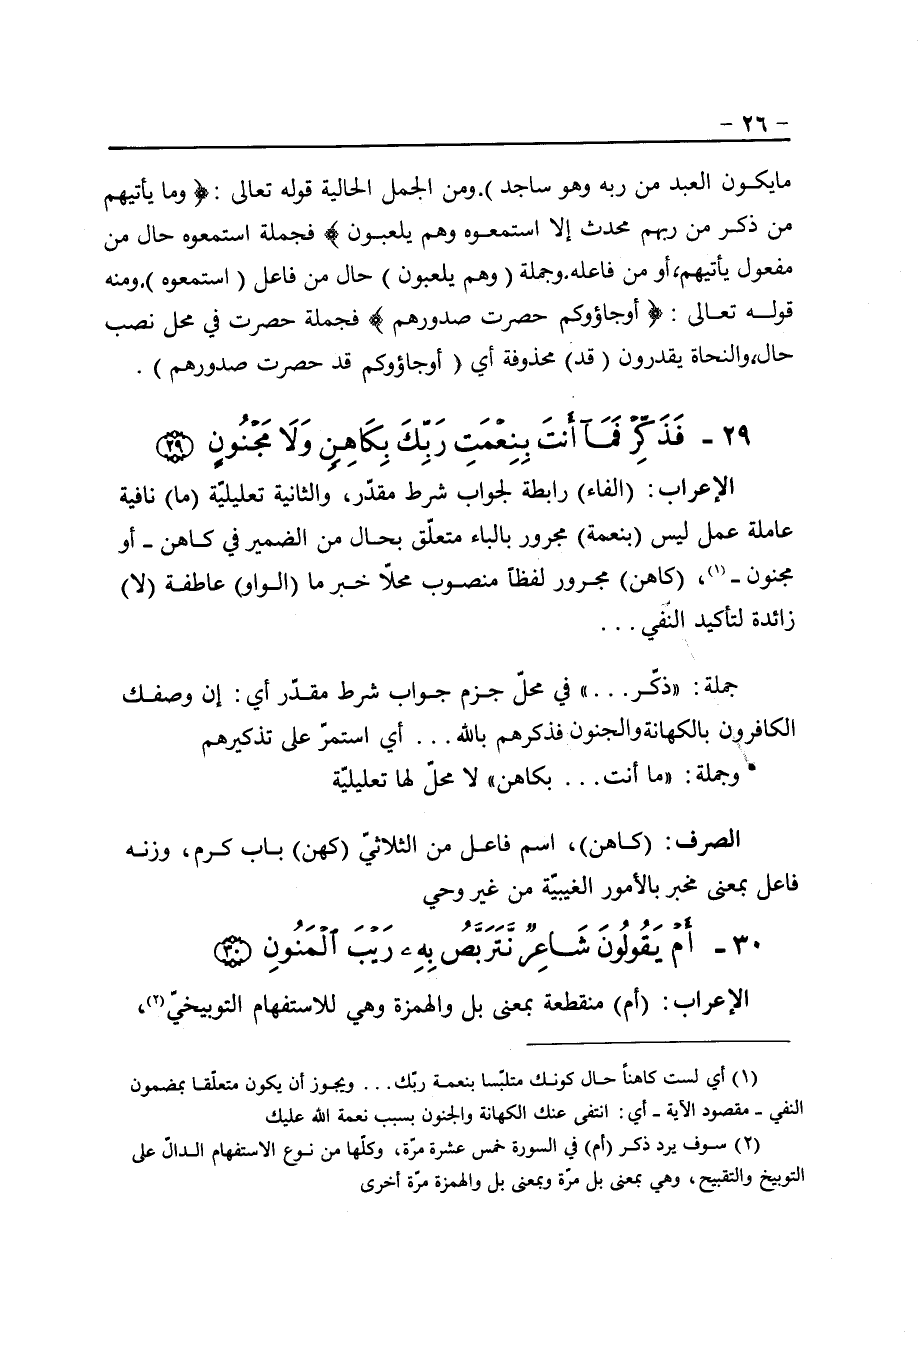 - ٢٦ -
مايكـون العبد من ربه وهو ساجد ).ومن الجمل الحالية قوله تعالى :﴿ وما يأتيهم
من ذكـر من ربهم محدث إلا استمعـوه وهم يلعبـون ﴾ فجملة استمعوه حال من
مفعول يأتيهم،أو من فاعله.وجملة ( وهم يلعبون ) حال من فاعل ( استمعوه ).ومنه
قولـــه تعـالى : ﴿ أوجاؤوكم حصرت صدورهم ﴾ فجملة حصرت في محل نصب
حال،والنحاة يقدرون ( قد) محذوفة أي ( أوجاؤوكم قد حصرت صدورهم ) .
٢٩ - فَذَكِّرۡ فَمَآ أَنتَ بِنِعۡمَتِ رَبِّكَ بِكَاهِنٖ وَلَا مَجۡنُونٍ ﴿٢٩﴾
الإعراب: (الفاء) رابطة لجواب شرط مقدّر، والثانية تعليليّة (ما) نافية
عاملة عمل ليس (بنعمة) مجرور بالباء متعلّق بحـال من الضمير في كـاهن ـ أو
مجنون ـ(١)، (كاهن) مجـرور لفظاً منصـوب محلّا خـبر ما (الـواو) عاطفـة (لا)
زائدة لتأكيد النّفي . . .
جملة: «ذكّـر. . .» في محلّ جـزم جـواب شرط مقـدّر أي: إن وصفـك
الكافرون بالكهانة والجنون فذكرهم بالله. . . أي استمرّ على تذكيرهم
وجملة: «ما أنت. . . بكاهن» لا محلّ لها تعليليّة
الصرف: (كـاهن)، اسم فاعـل من الثلاثيّ (كهن) بـاب كـرم، وزنـه
فاعل بمعنى مخبر بالأمور الغيبيّة من غير وحي
٣٠ - أَمۡ يَقُولُونَ شَاعِرٞ نَّتَرَبَّصُ بِهِۦ رَيۡبَ ٱلۡمَنُونِ ﴿٣٠﴾
الإعراب: (أم) منقطعة بمعنى بل والهمزة وهي للاستفهام التوبيخيّ(٢)،
(١) أي لست كاهناً حـال كونـك متلبّسا بنعمـة ربّك. . . ويجـوز أن يكون متعلّقـا بمضمون
النفي ـ مقصود الآية ـ أي: انتفى عنك الكهانة والجنون بسبب نعمة الله عليك
(٢) سـوف يرد ذكـر (أم) في السورة خمس عشرة مرّة، وكلّها من نـوع الاستفهام الـدالّ على
التوبيخ والتقبيح، وهي بمعنى بل مرّة وبمعنى بل والهمزة مرّة أخرى